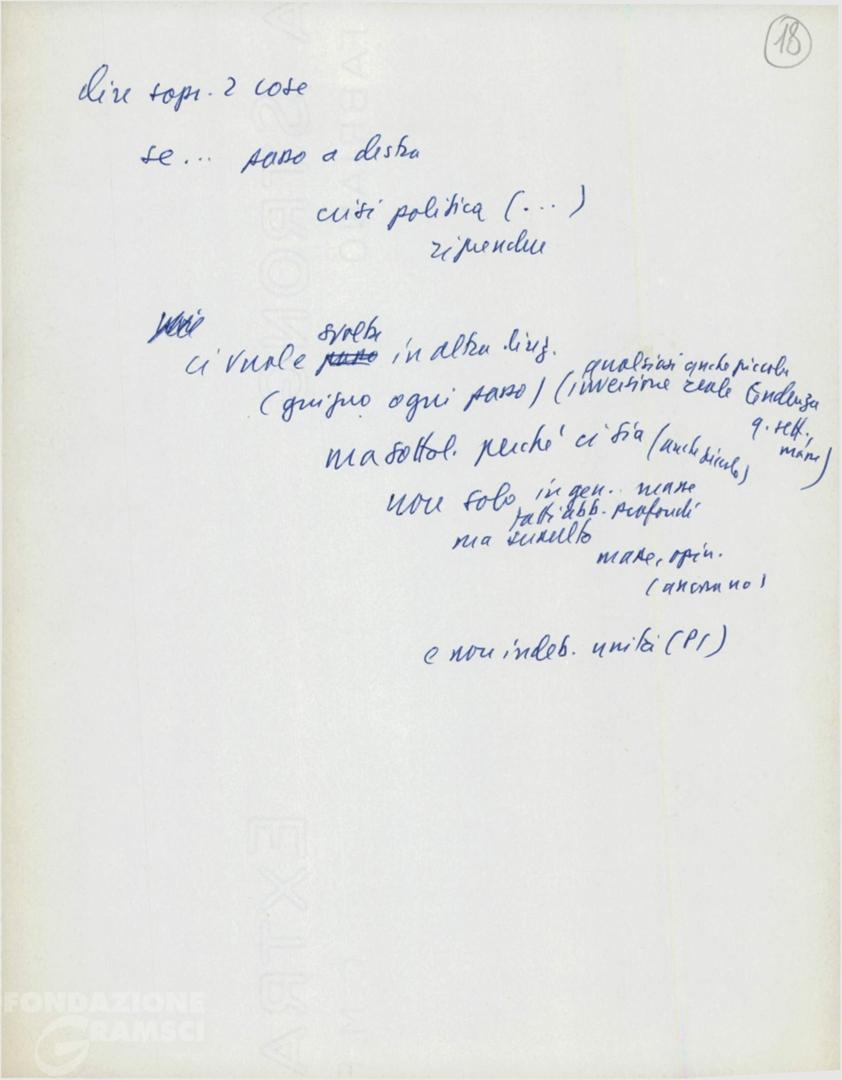 18
dire sopr. 2 cose
se... passo a destra
crisi politica (...)
riprendere
svolta
ci vuole passo in altra direz.
qualsiasi anche piccola
( ogni passo) (inversione reale tendenza
q. sett.,
ma sottol. perché ci sia (anche piccolo)
non solo in gen. masse
fatti abb. profondi
ma
masse, opin.
(ancora no)
e non indeb. unità (PS)
FONDAZIONE
GRAMSCI